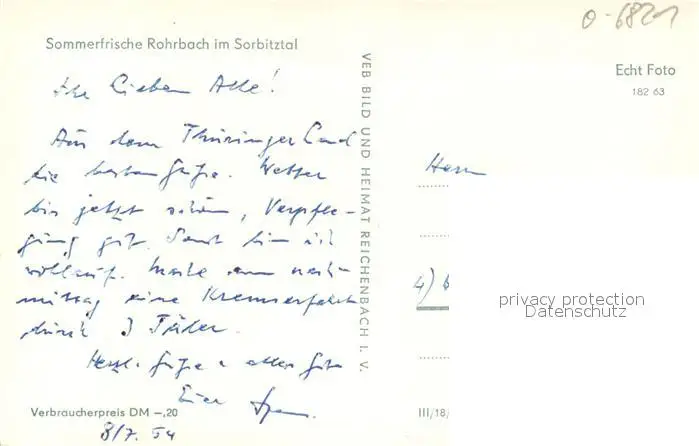 o-6821
Sommerfrische Rohrbach im Sorbitztal
Echt Foto
182 63
VEB BILD UND HEIMAT REICHENBACH I. V.
Ihr Lieben Alle!
Aus dem Thüringer Land
die besten Grüße. Wetter
bis jetzt schön, Verpfle-
gung gut. Sonst bin ich
wohlauf. Mache am nach-
mittag eine Kremserfahrt
durch 3 Täler.
Herzl. Grüße u. alles Gute
Euer
Herrn
4)
privacy protection
Datenschutz
Verbraucherpreis DM –,20
III/18/
8/7. 54